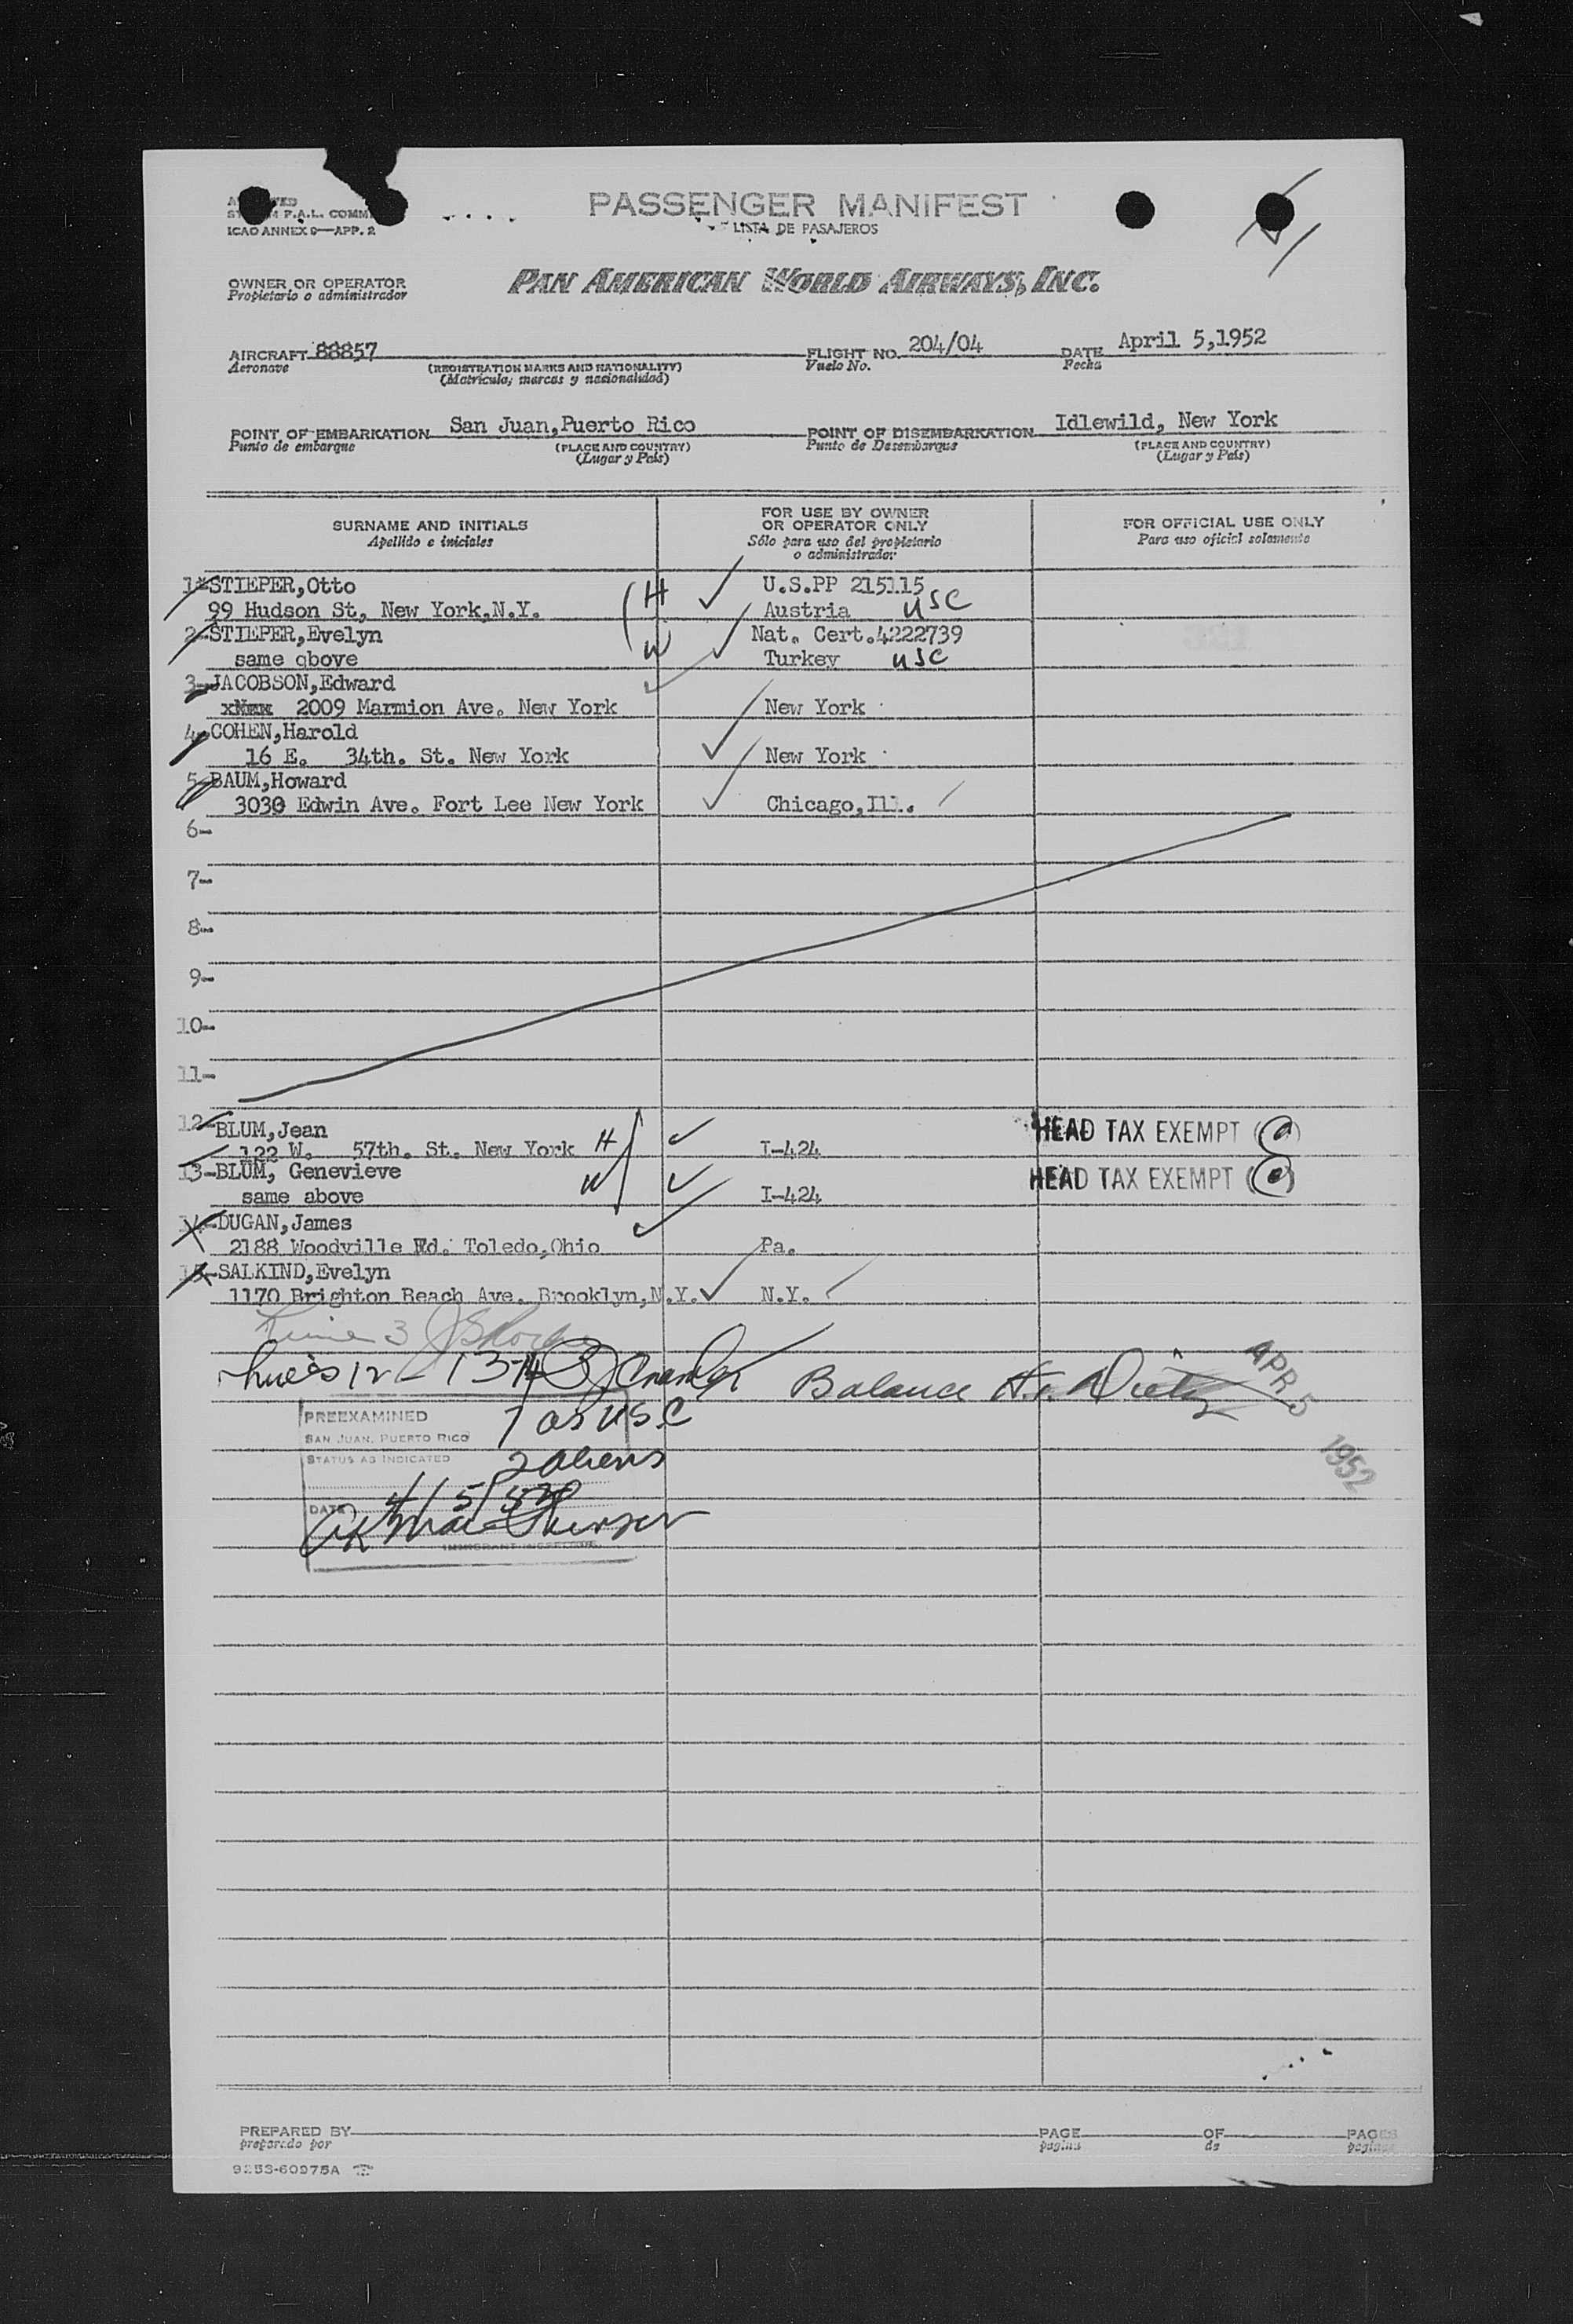 PASSENGER MANIFEST
LISTA DE PASAJEROS
F.A.L.
ICAO ANNEX 9—APP. 2
OWNER OR OPERATOR
Propietario o administrador
PAN AMERICAN WORLD AIRWAYS, INC.
AIRCRAFT 88857
Aeronave
(REGISTRATION MARKS AND NATIONALITY)
(Matrícula, marcas y nacionalidad)
FLIGHT NO. 204/04
Vuelo No.
DATE April 5,1952
Fecha
POINT OF EMBARKATION San Juan,Puerto Rico
Punto de embarque
(PLACE AND COUNTRY)
(Lugar y País)
POINT OF DISEMBARKATION Idlewild, New York
Punto de Desembarque
(PLACE AND COUNTRY)
(Lugar y País)
SURNAME AND INITIALS
Apellido e iniciales
FOR USE BY OWNER
OR OPERATOR ONLY
Sólo para uso del propietario
o administrador
FOR OFFICIAL USE ONLY
Para uso oficial solamente
1-STIEPER,Otto H U.S.PP 215115
99 Hudson St, New York,N.Y. Austria USC
2-STIEPER,Evelyn W Nat. Cert.4222739
same qbove Turkey USC
3-JACOBSON,Edward
2009 Marmion Ave. New York New York
4-COHEN,Harold
16 E. 34th. St. New York New York
5-BAUM,Howard
3030 Edwin Ave. Fort Lee New York Chicago,Ill.
6-
7-
8-
9-
10-
11-
12-BLUM,Jean HEAD TAX EXEMPT
122 W. 57th. St. New York H I-424
13-BLUM, Genevieve W HEAD TAX EXEMPT
same above I-424
14-DUGAN,James
2188 Woodville Rd. Toledo,Ohio Pa.
15-SALKIND,Evelyn
1170 Brighton Beach Ave. Brooklyn,N.Y. N.Y.
Line 3
Lines 12-13-14 Balance
APR 5 1952
PREEXAMINED 7 as USC
SAN JUAN, PUERTO RICO
STATUS AS INDICATED 2 aliens
DATE 4/5/52
IMMIGRANT INSPECTOR
PREPARED BY
preparado por
PAGE OF PAGES
pagina de paginas
9253-60975A